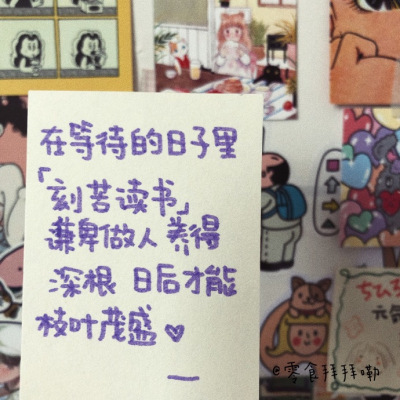 在等待的日子里
「刻苦读书」
谦卑做人 养得
深根 日后才能
枝叶茂盛♡
—
ちひろ
元気
@零食拜拜嘞